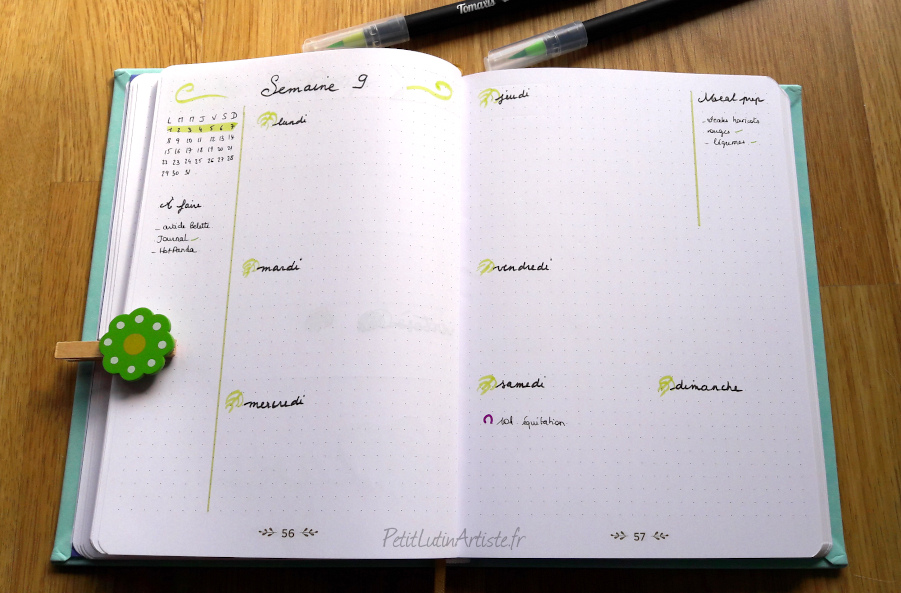 Tomaxis
Semaine 9
L M M J V S D
1 2 3 4 5 6 7
8 9 10 11 12 13 14
15 16 17 18 19 20 21
22 23 24 25 26 27 28
29 30 31
À faire
Journal
lundi
mardi
mercredi
56
jeudi
Meal prep
- steaks haricots
rouges
- légumes
vendredi
samedi
dimanche
équitation
57
PetitLutinArtiste.fr